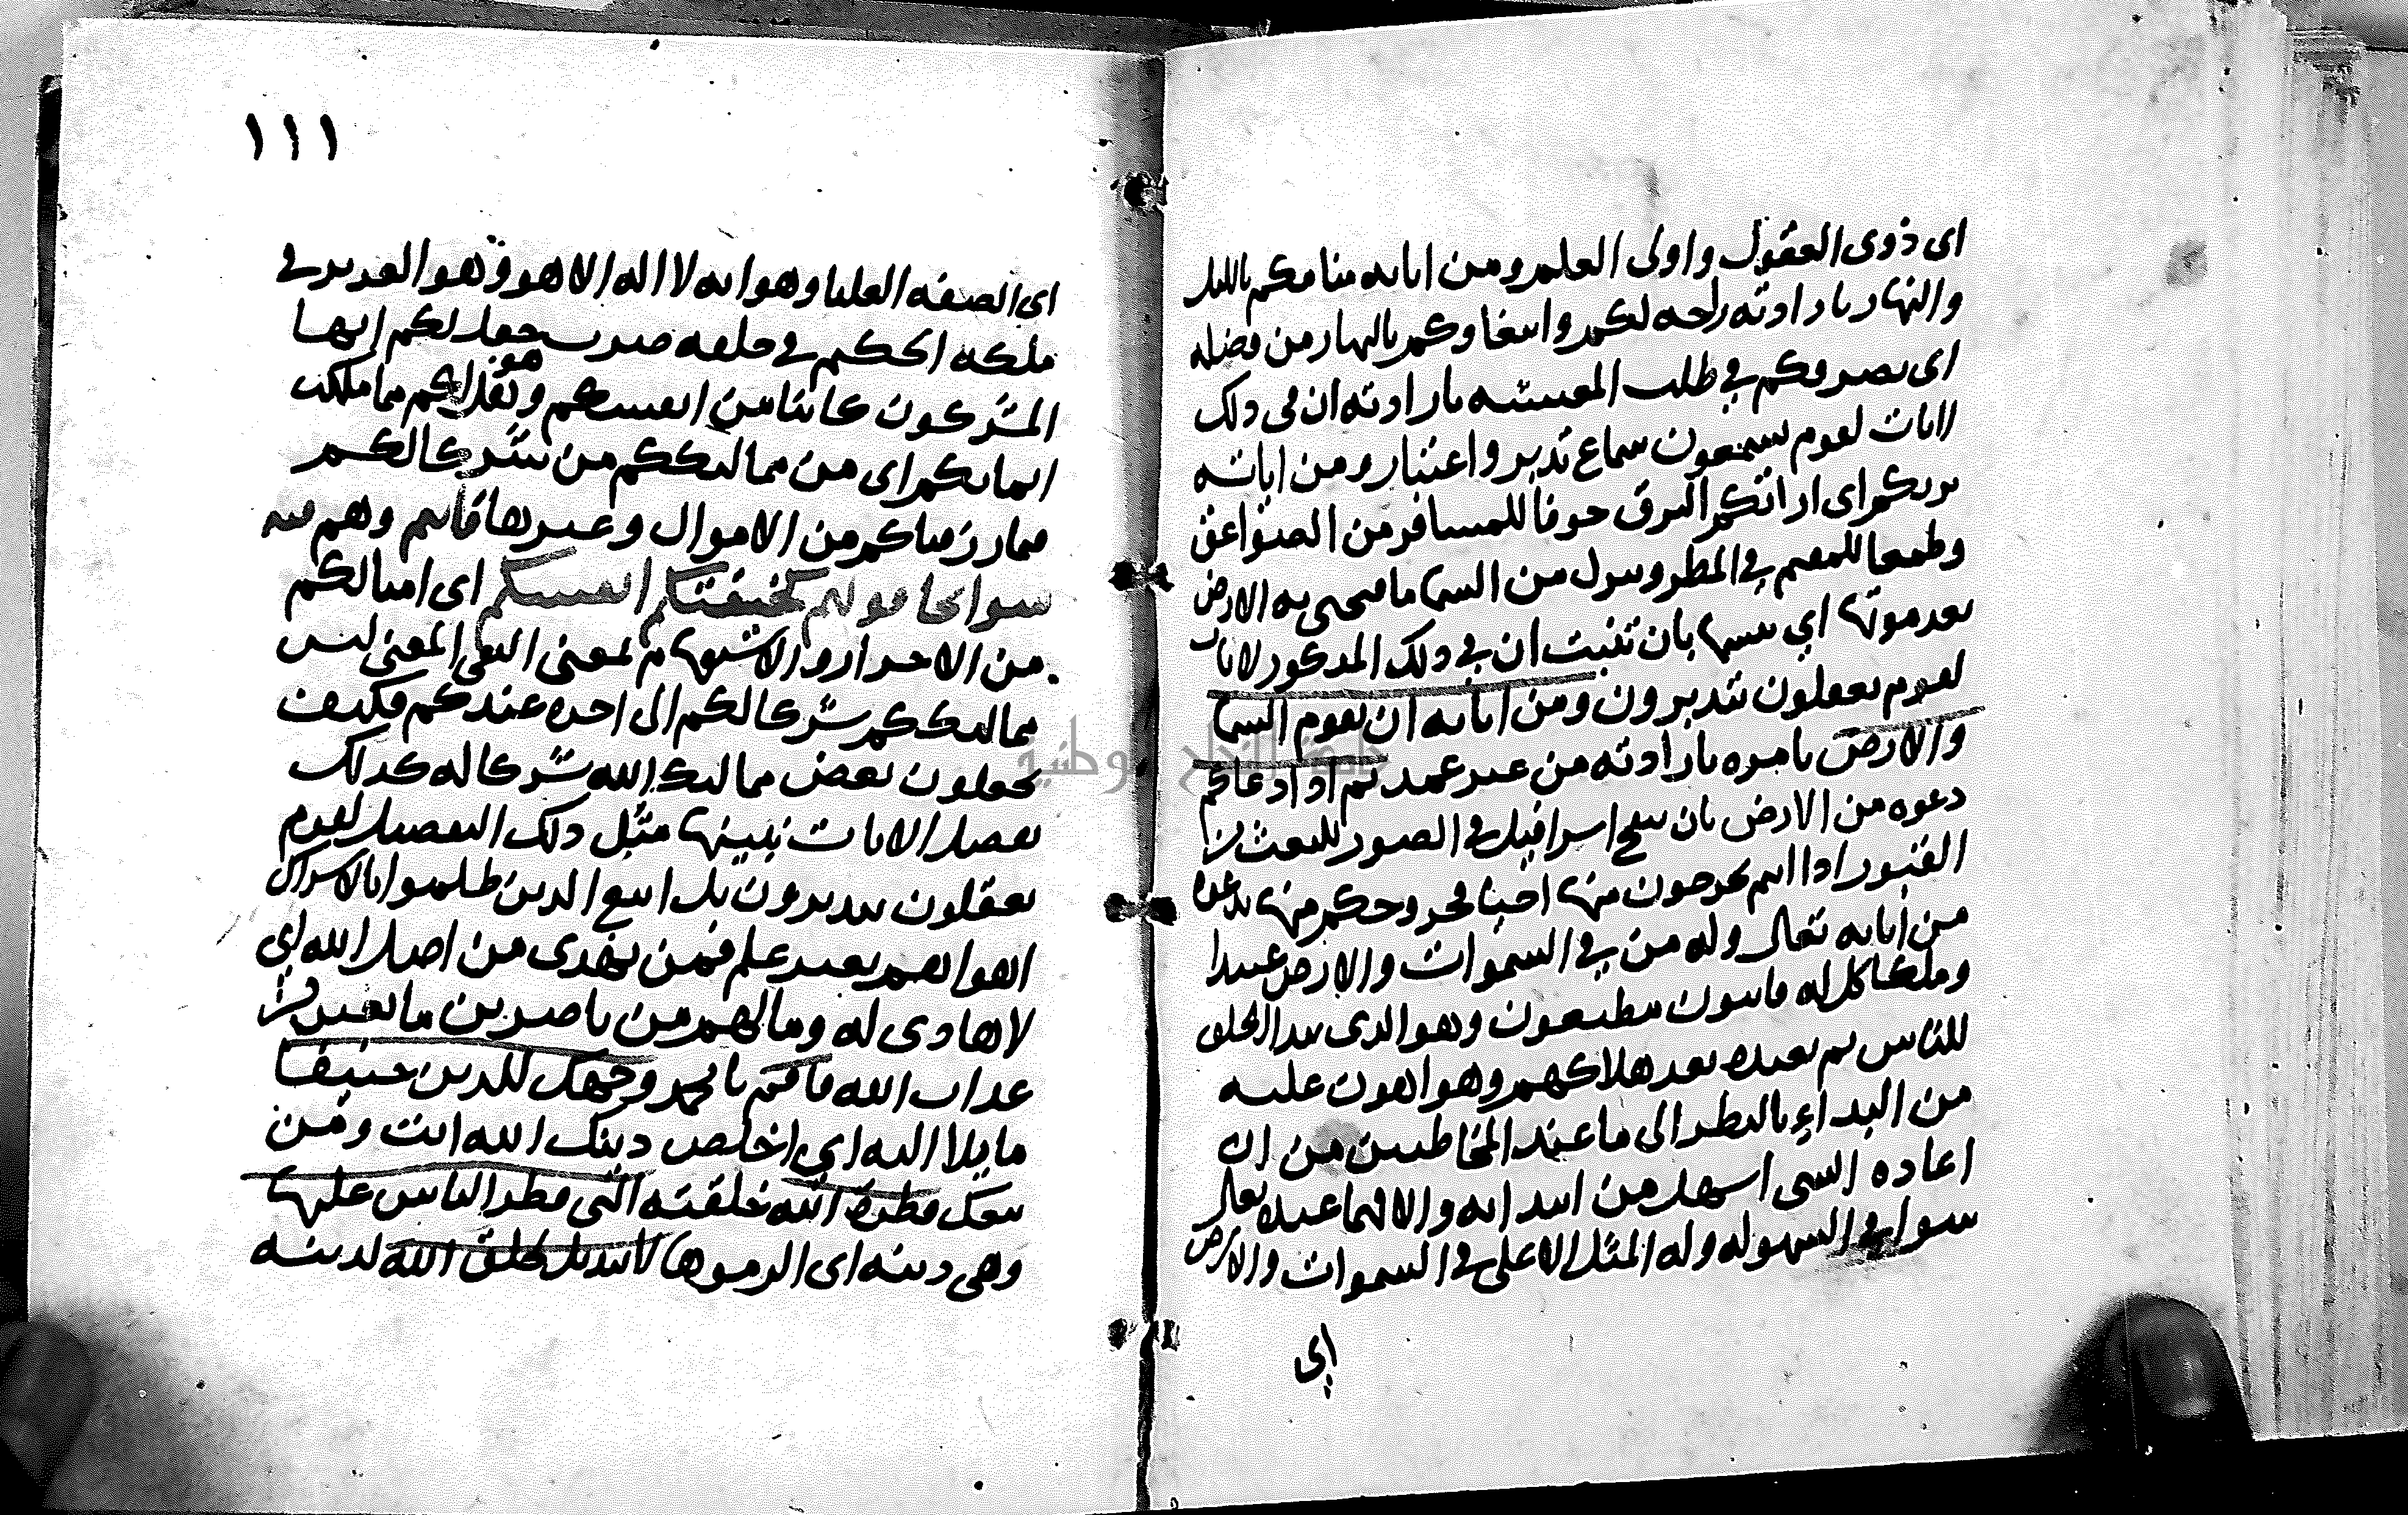 اى ذوى العقول واولى العلم ومن اياته منامكم بالليل
والنهار بارادته راحه لكم وابتغاوكم بالنهار من فضله
اى تصرفكم في طلب المعيشه بارادته ان في ذلك
لايات لقوم يسمعون سماع تدبر واعتبار ومن اياته
يريكم اى اراتكم البرق خوفا للمسافر من الصواعق
وطمعا للمقيم في المطر وينزل من السما ما فيحيى به الارض
بعد موتها اي يبسها بان تنبت ان في ذلك المذكور لايات
لقوم يعقلون يتدبرون ومن اياته ان تقوم السما
والارض بامره بارادته من غير عمد ثم اذا دعاكم
دعوه من الارض بان ينفخ اسرافيل في الصور للبعث من
القبور اذا انتم تخرجون منها احيا فخروجكم منها بدعوه
من اياته تعالى وله من في السموات والارض عبيدا
وملكا كل له قانتون مطيعون وهو الذى يبدا الخلق
للناس ثم يعيده بعد هلاكهم وهو اهون عليه
من البداء بالنظر الى ما عند المخاطبين من ان
اعاده الشى اسهل من ابتدايه والا فهما عنده تعالى
سوا في السهوله وله المثل الاعلى في السموات والارض
اي
١١١
اي الصفه العليا وهو انه لا اله الا هو وهو العزيز في
ملكه الحكيم في خلقه ضرب جعل لكم ايها
المشركون كاينا من انفسكم وهو هل لكم مما ملكت
ايمانكم اى من مماليككم من شركا لكم
فيما رزقناكم من الاموال وغيرها فانتم وهم فيه
سوا تخافونهم كخيفتكم انفسكم اى امثالكم
من الاحرار والاستفهام لمعنى النفى المعنى ليس
مماليككم شركا لكم الى اخره عندكم فكيف
تجعلون بعض مماليك الله شركا له كذلك
نفصل الايات نبينها مثل ذلك التفصيل لقوم
يعقلون يتدبرون بل اتبع الذين ظلموا بالاشراك
اهواهم بغير علم فمن يهدى من اضل الله اي
لا هادى له وما لهم من ناصرين مانعين من
عذاب الله فاقم يا محمد وجهك للدين حنيفا
مايلا اليه اي اخلص دينك الله انت ومن
تبعك فطرة الله خلقته التي فطر الناس علىها
وهى دينه اى الزموها لا تبديل لخلق الله لدينه